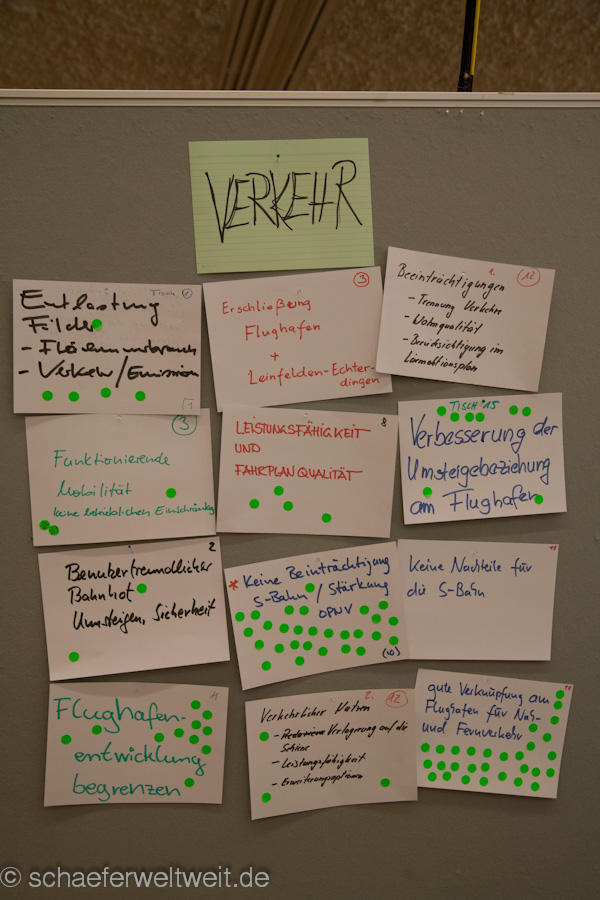 VERKEHR
Tisch 1
Entlastung
Filder
- Flächenverbrauch
- Verkehr/Emission
1
3
Erschließung
Flughafen
+
Leinfelden-Echter-
dingen
1. 12
Beeinträchtigungen
- Trennung Verkehre
- Wohnqualität
- Berücksichtigung im
Lärmaktionsplan
3
Funktionierende
Mobilität
keine betrieblichen Einschränkg
8
LEISTUNGSFÄHIGKEIT
UND
FAHRPLANQUALITÄT
TISCH 15
Verbesserung der
Umsteigebeziehung
am Flughafen
2
Benutzerfreundlicher
Bahnhof
Umsteigen, Sicherheit
* Keine Beinträchtigung
S-Bahn / Stärkung
ÖPNV
(10)
Keine Nachteile für
die S-Bahn
Flughafen-
entwicklung
begrenzen
2. 12
Verkehrlicher Nutzen
- Verlagerung auf die
Schiene
- Leistungsfähigkeit
- Erweiterungsoptionen
gute Verknüpfung am
Flughafen für Nah-
und Fernverkehr
© schaeferweltweit.de